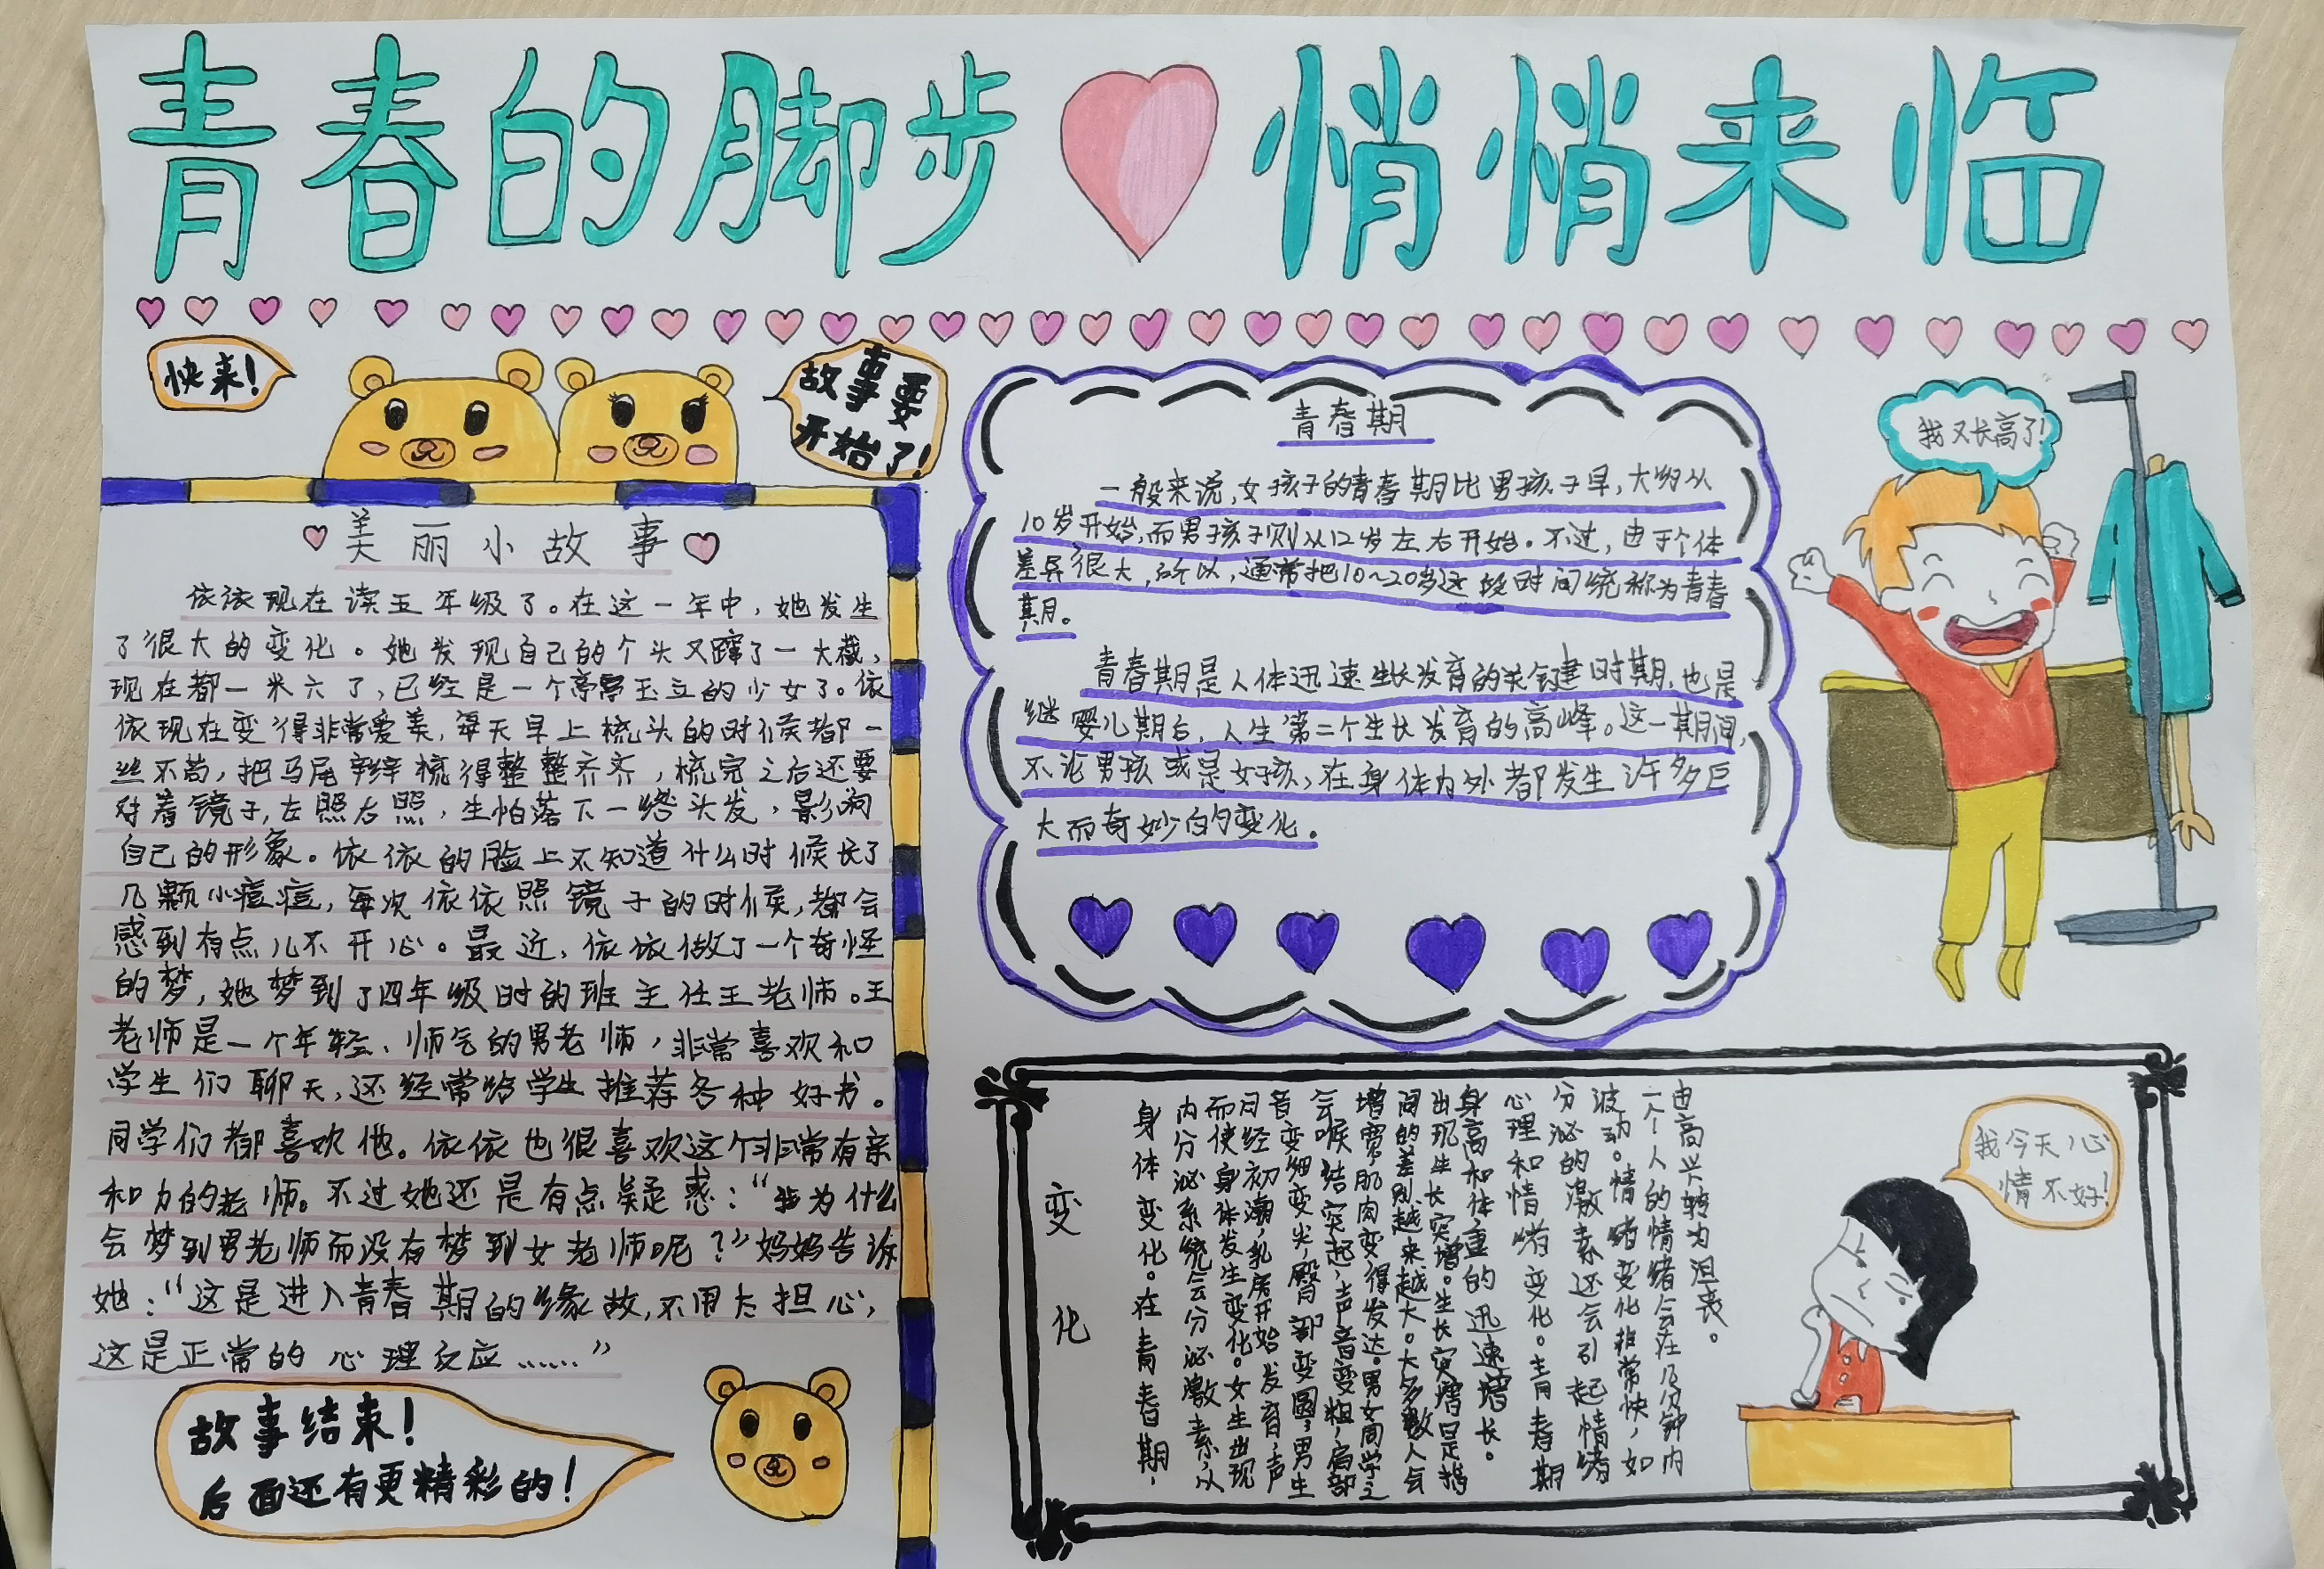 青春的脚步悄悄来临
快来!
故事要
开始了!
美丽小故事
依依现在读五年级了。在这一年中,她发生
了很大的变化。她发现自己的个头又蹿了一大截,
现在都一米六了,已经是一个亭亭玉立的少女了。依
依现在变得非常爱美,每天早上梳头的时候都一
丝不苟,把马尾辫梳得整整齐齐,梳完之后还要
对着镜子,左照右照,生怕落下一绺头发,影响
自己的形象。依依的脸上不知道什么时候长了
几颗小痘痘,每次依依照镜子的时候,都会
感到有点儿不开心。最近,依依做了一个奇怪
的梦,她梦到了四年级时的班主任王老师。王
老师是一个年轻、帅气的男老师,非常喜欢和
学生们聊天,还经常给学生推荐各种好书。
同学们都喜欢他。依依也很喜欢这个非常有亲
和力的老师。不过她还是有点疑惑:“我为什么
会梦到男老师而没有梦到女老师呢?”妈妈告诉
她:“这是进入青春期的缘故,不用太担心,
这是正常的心理反应……”
故事结束!
后面还有更精彩的!
青春期
一般来说,女孩子的青春期比男孩子早,大约从
10岁开始,而男孩子则从12岁左右开始。不过,由于个体
差异很大,所以,通常把10~20岁这段时间统称为青春
期。
青春期是人体迅速生长发育的关键时期,也是
继婴儿期后,人生第二个生长发育的高峰。这一期间,
不论男孩或是女孩,在身体内外都发生许多巨
大而奇妙的变化。
我又长高了!
变化
身体变化。在青春期,
内分泌系统会分泌激素,从
而使身体发生变化。女生出现
月经初潮,乳房开始发育,声
音变细变尖,臀部变圆;男生
会喉结突起,声音变粗,肩部
增宽,肌肉变得发达。男女同学之
间的差别越来越大。大多数人会
出现生长突增。生长突增是指
身高和体重的迅速增长。
心理和情绪变化。青春期
分泌的激素还会引起情绪
波动。情绪变化非常快,如
一个人的情绪会在几分钟内
由高兴转为沮丧。
我今天心
情不好!